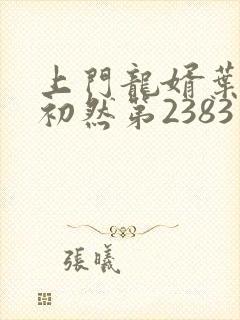 上門龍婿葉
初然第2383
張曦